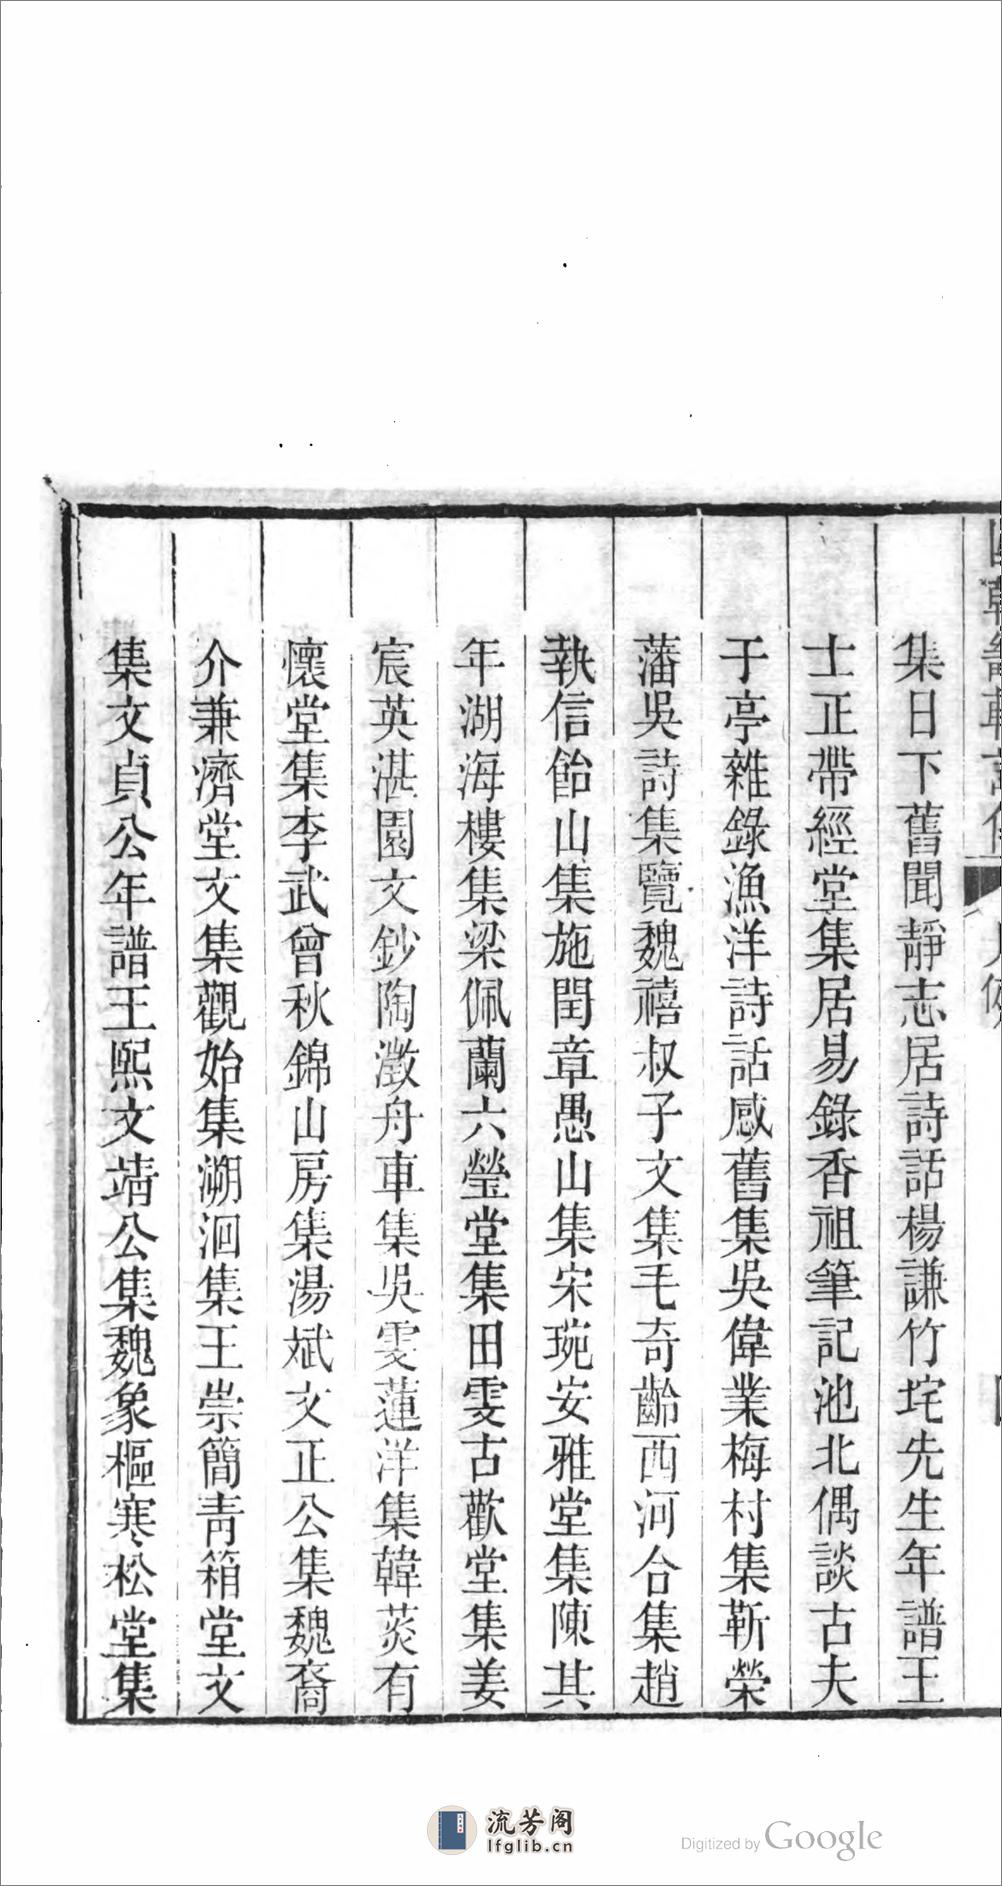 集日下舊聞靜志居詩話楊謙竹垞先生年譜王
士正帶經堂集居易錄香祖筆記池北偶談古夫
于亭雜錄漁洋詩話感舊集吳偉業梅村集靳榮
藩吳詩集覽魏禧叔子文集毛奇齡西河合集趙
執信飴山集施閏章愚山集宋琬安雅堂集陳其
年湖海樓集梁佩蘭六瑩堂集田雯古歡堂集姜
宸英湛園文鈔陶澂舟車集吳雯蓮洋集韓菼有
懷堂集李武曾秋錦山房集湯斌文正公集魏裔
介兼濟堂文集觀始集溯洄集王崇簡青箱堂文
集文貞公年譜王熙文靖公集魏象樞寒松堂集
流芳阁
lfglib.cn
Digitized by Google